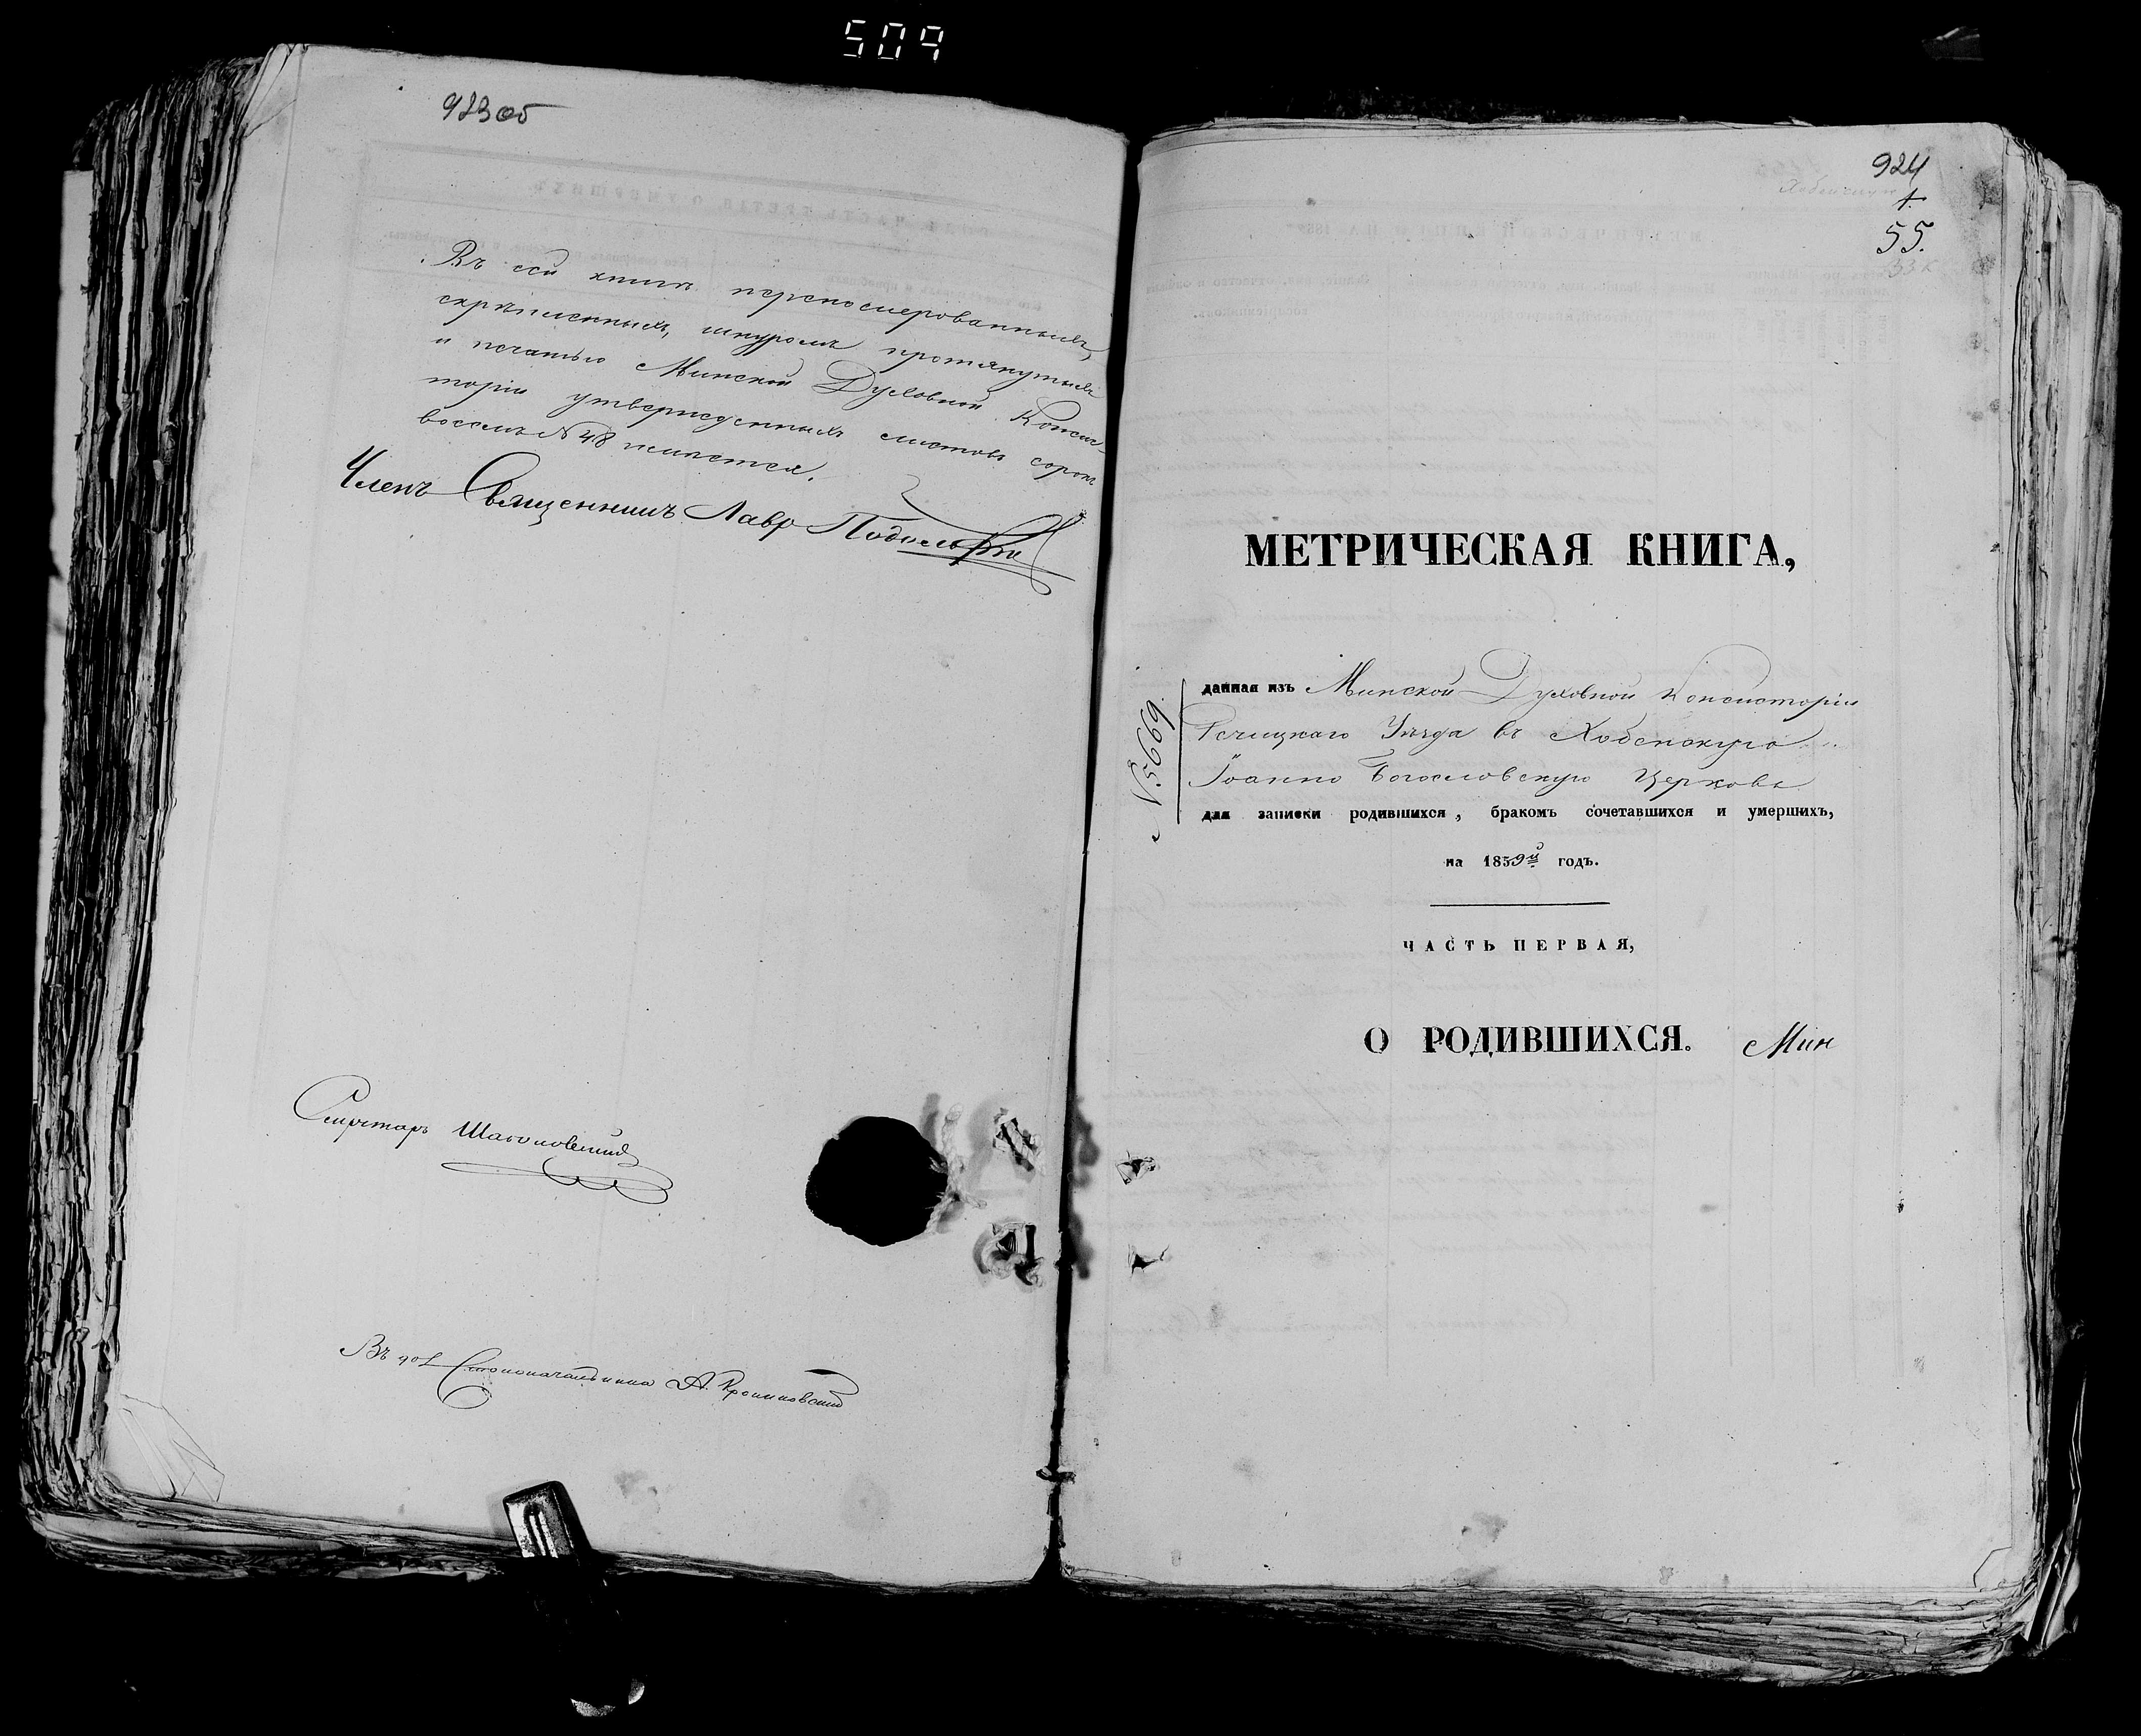 509
923 об
Въ сей книгѣ перенумерованныхъ,
скрѣпленныхъ, шнуромъ протянутыхъ
и печатью Минской Духовной Консис-
торіи утвержденныхъ листовъ сорокъ
восемь № 48 имѣется.
Членъ Священникъ Лавр
Секретарь
Въ дол Столоначальника А.
924
1.
55.
МЕТРИЧЕСКАЯ КНИГА,
№ 5669.
данная изъ Минской Духовной Консисторіи
Речицкаго Уѣзда въ Хобенскую
Іоанно Богословскую Церковь
для записки родившихся, бракомъ сочетавшихся и умершихъ,
на 1859й годъ.
ЧАСТЬ ПЕРВАЯ,
О РОДИВШИХСЯ. Мин